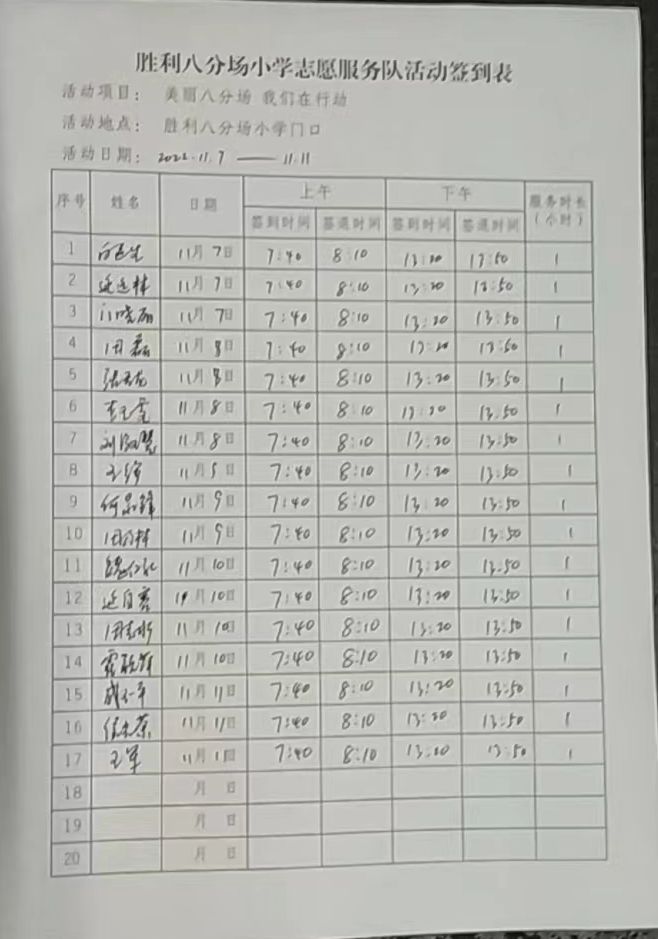 胜利八分场小学志愿服务队活动签到表
活动项目： 美丽八分场 我们在行动
活动地点： 胜利八分场小学门口
活动日期： 2022.11.7 —— 11.11
序号 姓名 日期 上午 下午 服务时长（小时）
签到时间 签退时间 签到时间 签退时间
1 11月7日 7:40 8:10 13:20 13:50 1
2 11月7日 7:40 8:10 13:20 13:50 1
3 门晓丽 11月7日 7:40 8:10 13:20 13:50 1
4 田磊 11月8日 7:40 8:10 13:20 13:50 1
5 11月8日 7:40 8:10 13:20 13:50 1
6 11月8日 7:40 8:10 13:20 13:50 1
7 11月8日 7:40 8:10 13:20 13:50 1
8 11月 日 7:40 8:10 13:20 13:50 1
9 11月9日 7:40 8:10 13:20 13:50 1
10 11月9日 7:40 8:10 13:20 13:50 1
11 11月10日 7:40 8:10 13:20 13:50 1
12 11月10日 7:40 8:10 13:20 13:50 1
13 11月10日 7:40 8:10 13:20 13:50 1
14 11月10日 7:40 8:10 13:20 13:50 1
15 11月11日 7:40 8:10 13:20 13:50 1
16 11月11日 7:40 8:10 13:20 13:50 1
17 王军 11月11日 7:40 8:10 13:20 13:50 1
18 月 日
19 月 日
20 月 日